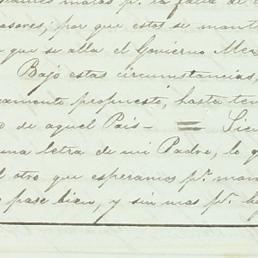 maras pr. la falta de
asores; por que estos se mante
que se alla el Govierno Mex
Bajo estas circunstancias,
amente propuesto, hasta ten
de aquel País — = Sie
una letra de mi Padre, lo q
el otro que esperamos pr. mom
pase bien, y sin mas pr. h